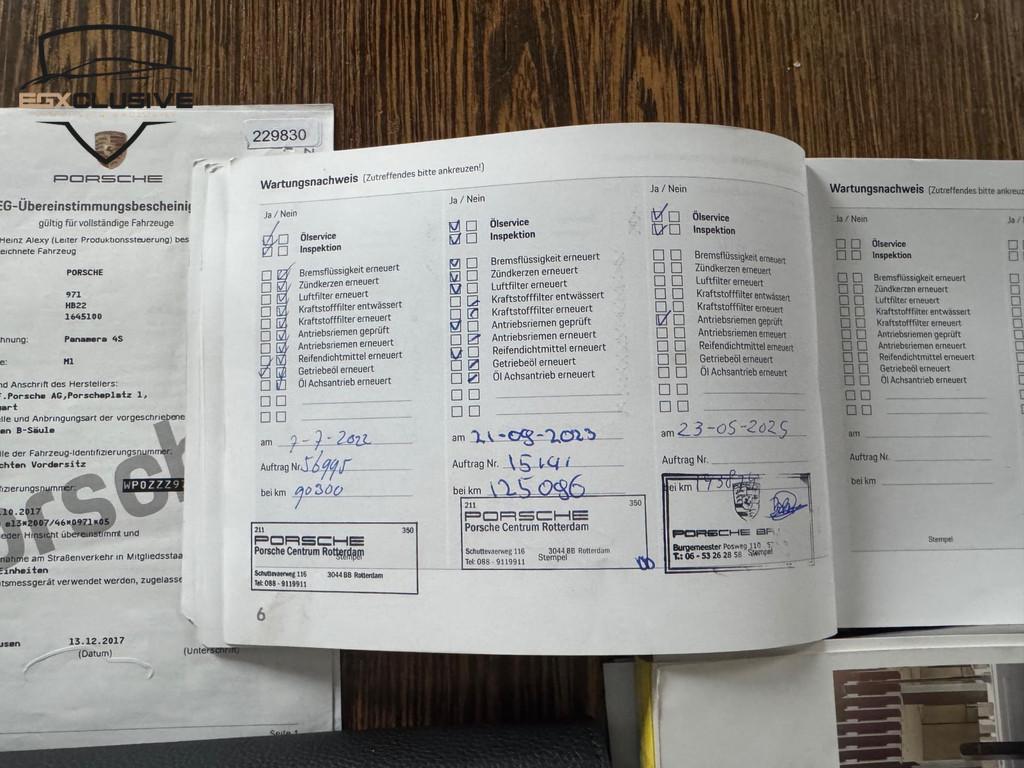 EGXOLUSIVE
229830
PORSCHE
EG-Übereinstimmungsbescheinig
gültig für vollständige Fahrzeuge
Heinz Alexy (Leiter Produktionssteuerung) bes
eichnete Fahrzeug
PORSCHE
971
HB22
1645100
hnung: Panamera 4S
e: M1
nd Anschrift des Herstellers:
.F.Porsche AG,Porscheplatz 1,
gart
lle und Anbringungsart der vorgeschriebene
en B-Säule
lle der Fahrzeug-Identifizierungsnummer:
chten Vordersitz
fizierungsnummer: WP0ZZZ97
.10.2017
e13*2007/46*0971*05
eder Hinsicht übereinstimmt und
nahme am Straßenverkehr in Mitgliedsstaa
Einheiten
tsmessgerät verwendet werden, zugelasse
usen 13.12.2017
(Datum) (Unterschrift)
Seite 1
Wartungsnachweis (Zutreffendes bitte ankreuzen!)
Ja / Nein
Ölservice
Inspektion
Bremsflüssigkeit erneuert
Zündkerzen erneuert
Luftfilter erneuert
Kraftstofffilter entwässert
Kraftstofffilter erneuert
Antriebsriemen geprüft
Antriebsriemen erneuert
Reifendichtmittel erneuert
Getriebeöl erneuert
Öl Achsantrieb erneuert
am 7-7-2022
Auftrag Nr. 56995
bei km 90300
211 350
PORSCHE
Porsche Centrum Rotterdam
Stempel
Schuttevaerweg 116 3044 BB Rotterdam
Tel: 088 - 9119911
6
Ja / Nein
Ölservice
Inspektion
Bremsflüssigkeit erneuert
Zündkerzen erneuert
Luftfilter erneuert
Kraftstofffilter entwässert
Kraftstofffilter erneuert
Antriebsriemen geprüft
Antriebsriemen erneuert
Reifendichtmittel erneuert
Getriebeöl erneuert
Öl Achsantrieb erneuert
am 21-09-2023
Auftrag Nr.
bei km 125096
211 350
PORSCHE
Porsche Centrum Rotterdam
Schuttevaerweg 116 3044 BB Rotterdam
Stempel
Tel: 088 - 9119911
Ja / Nein
Ölservice
Inspektion
Bremsflüssigkeit erneuert
Zündkerzen erneuert
Luftfilter erneuert
Kraftstofffilter entwässert
Kraftstofffilter erneuert
Antriebsriemen geprüft
Antriebsriemen erneuert
Reifendichtmittel erneuert
Getriebeöl erneuert
Öl Achsantrieb erneuert
am 23-05-2025
Auftrag Nr.
bei km
PORSCHE
Burgemeester Posweg 110
T.: 06 - 53 26 28 58 Stempel
Wartungsnachweis (Zutreffendes bitte ankreuz
Ja / Nein
Ölservice
Inspektion
Bremsflüssigkeit erneuert
Zündkerzen erneuert
Luftfilter erneuert
Kraftstofffilter entwässert
Kraftstofffilter erneuert
Antriebsriemen geprüft
Antriebsriemen erneuert
Reifendichtmittel erneuert
Getriebeöl erneuert
Öl Achsantrieb erneuert
am
Auftrag Nr.
bei km
Stempel
Ja /